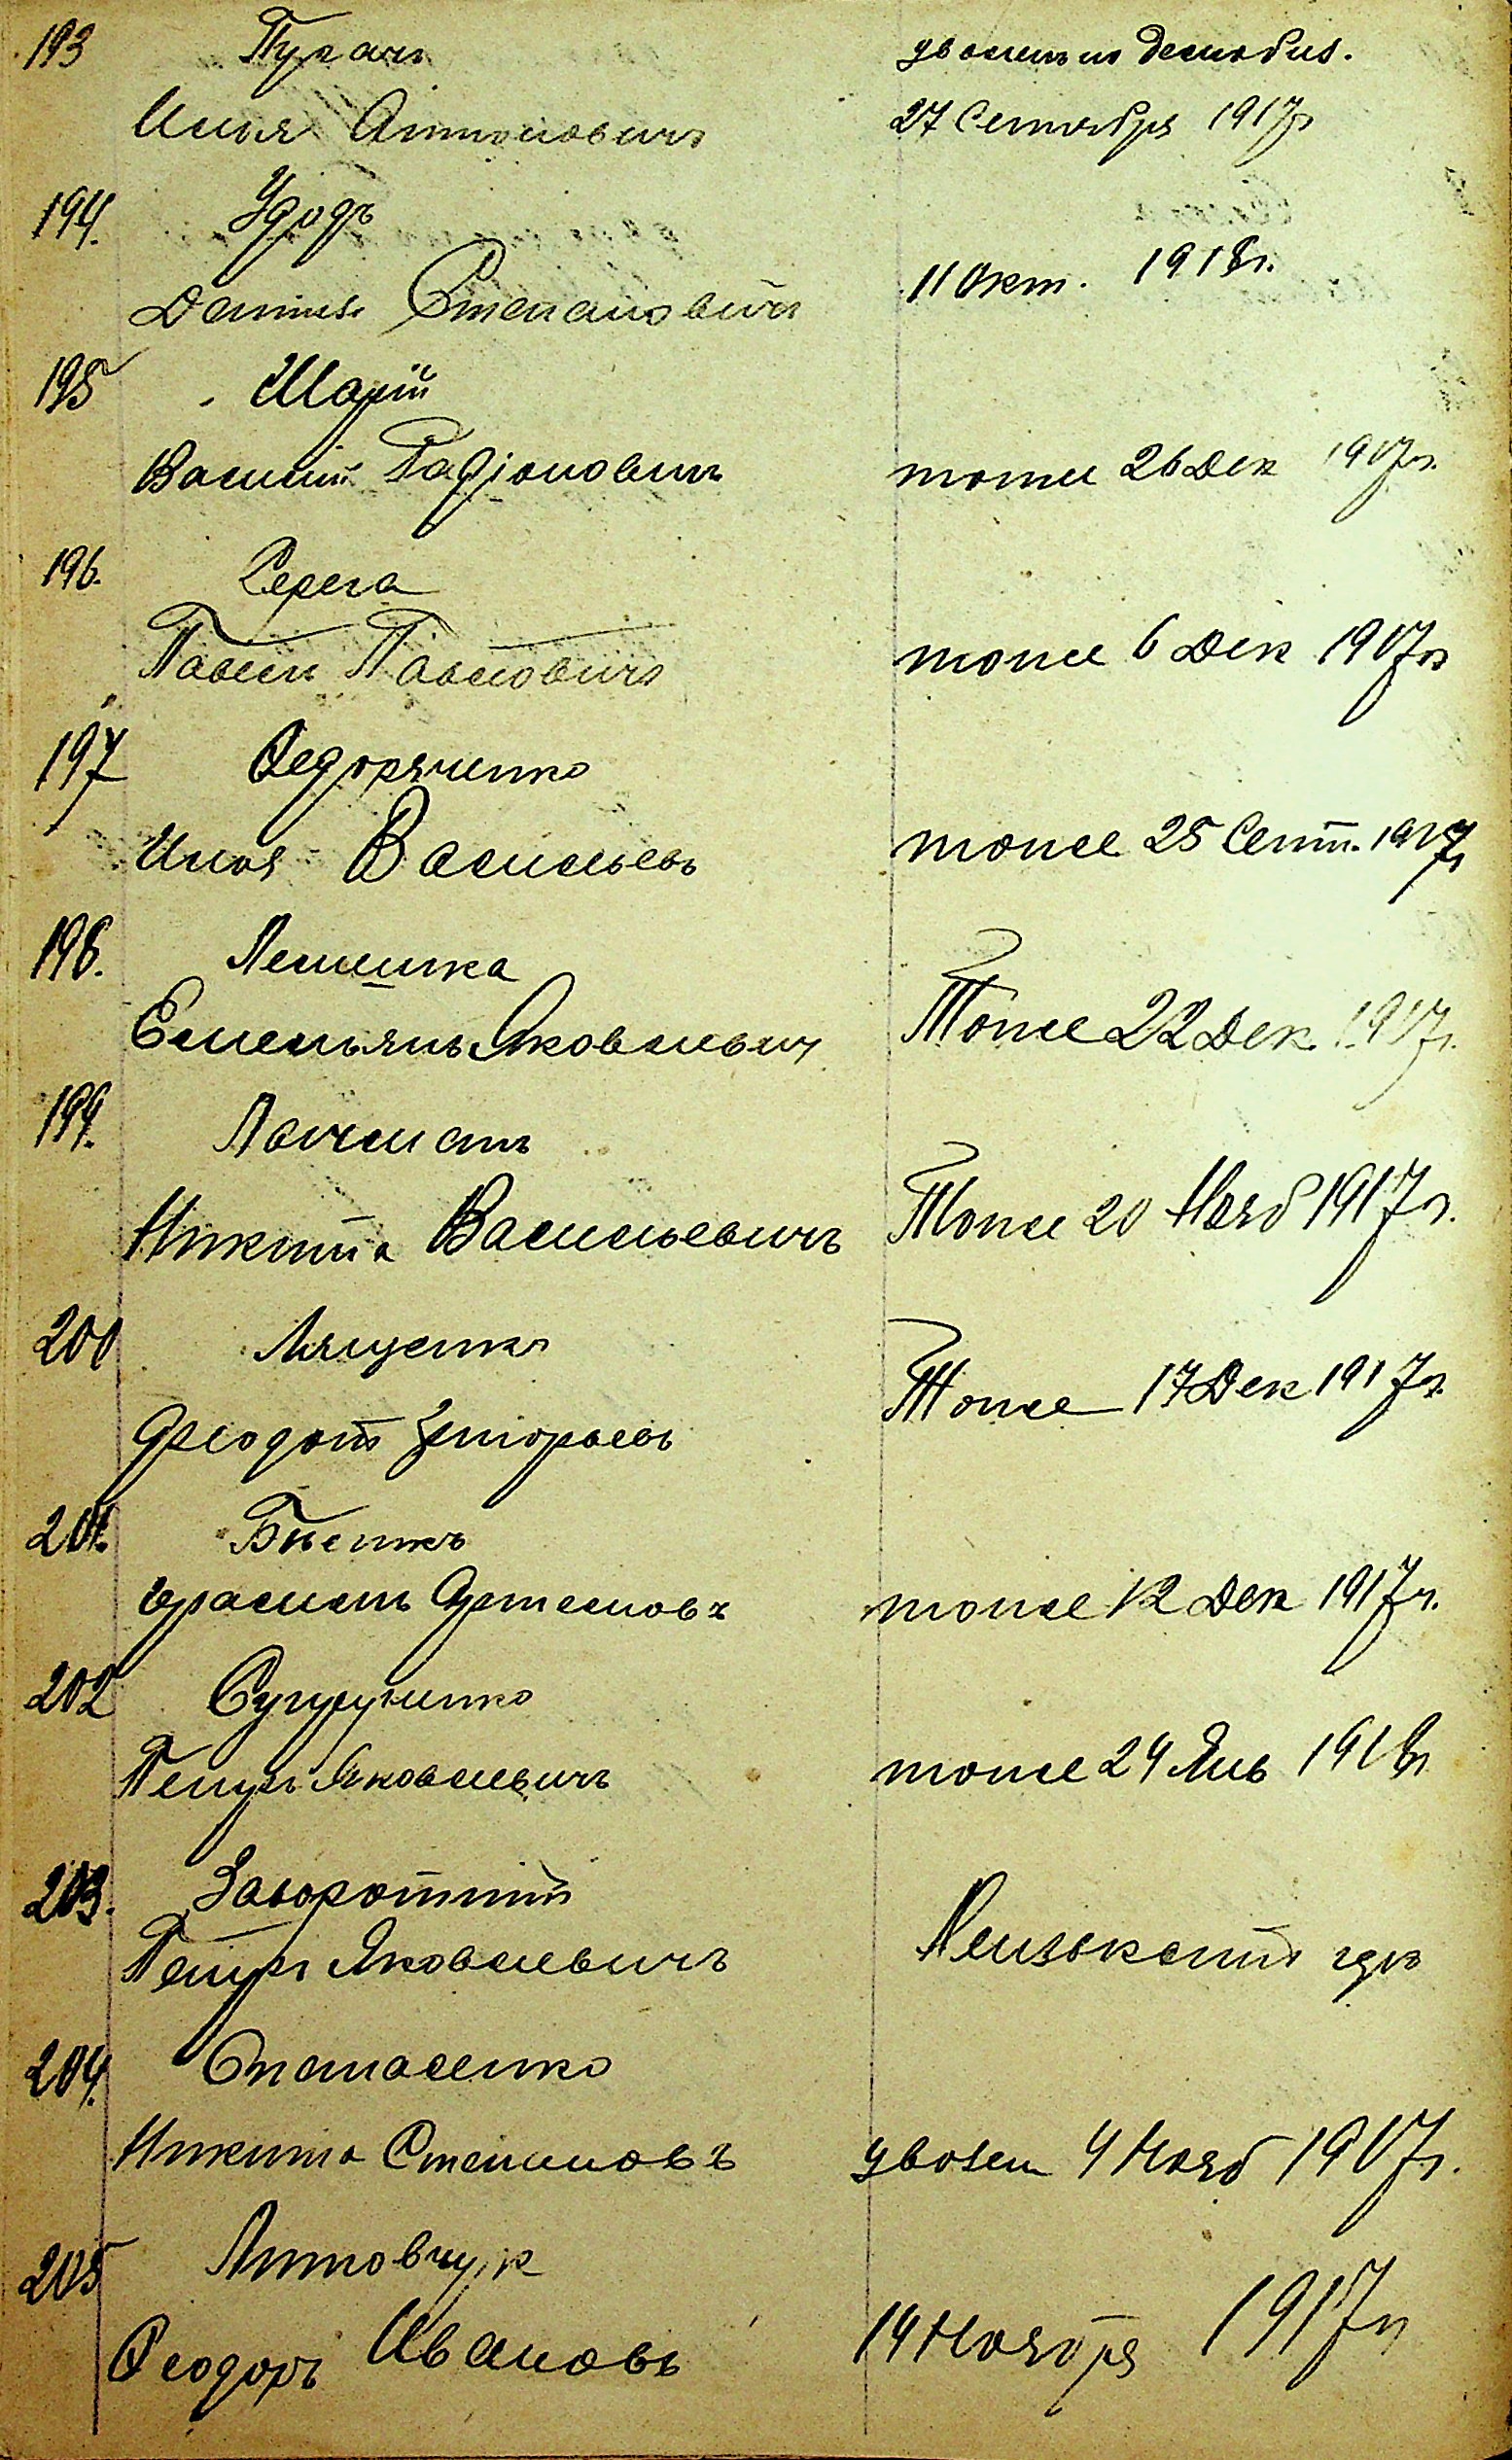 193 Пугачъ уволенъ по демобил.
Илья Антоновичъ 27 Сентября 1917г
194. Удодъ
Данило Степановичъ 11 Окт. 1918г.
195 Шарій
Василій Радіоновичъ тоже 26 Дек 1917г.
196. Серега
Павелъ Павловичъ тоже 6 Дек 1917г
197 Федоряченко
Илья Васильевъ тоже 25 Сент. 1917г
198. Лемешка
Емельянъ Яковлевич Тоже 22 Дек. 1917г.
199. Лачматъ
Никита Васильевичъ Тоже 20 Нояб 1917г.
200 Лященко
Феодотъ Григорьевъ Тоже 17 Дек 1917г.
201.
Герасимъ Артемовъ тоже 12 Дек 1917г.
202
Петръ Яковлевичъ тоже 24 Янв 1918г
203. Заворотній
Петръ Яковлевичъ
204. Опанасенко
Никита Степановъ уволен 4 Нояб 1917г.
205 Литовчук
Феодоръ Ивановъ 14 Ноября 1917г